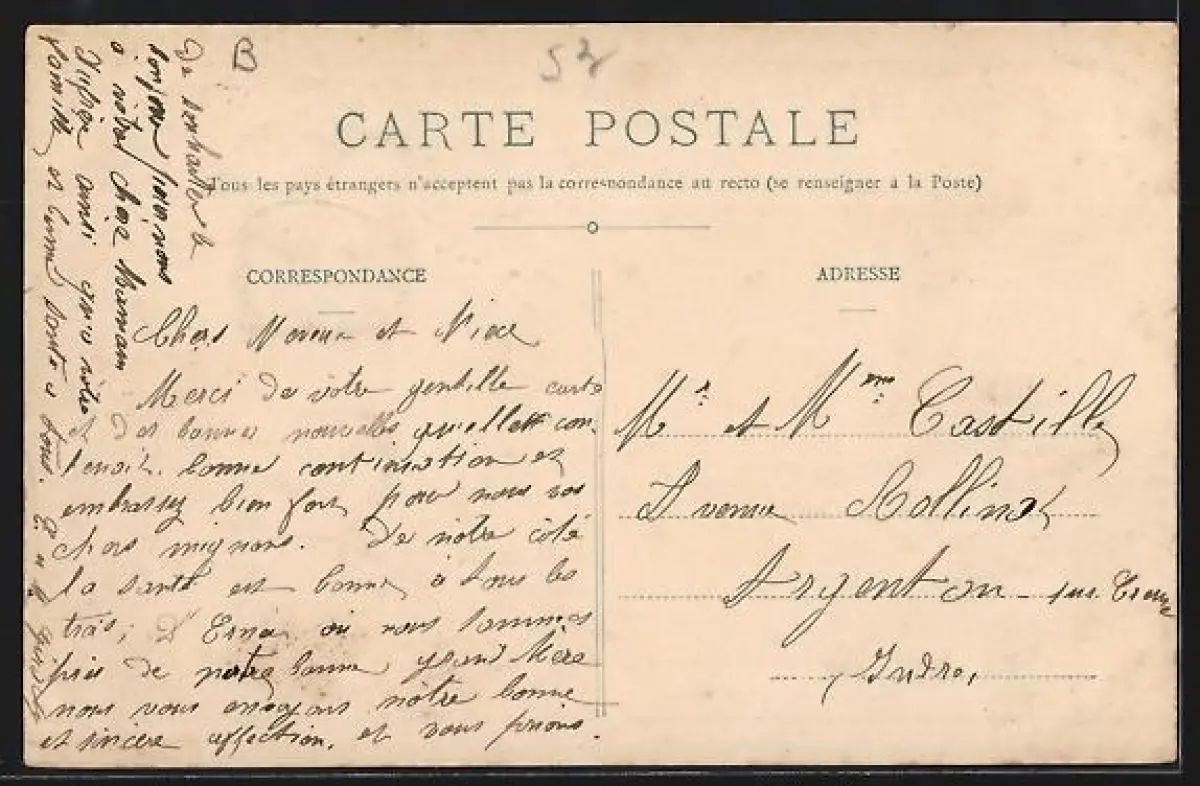 B
52
CARTE POSTALE
Tous les pays étrangers n'acceptent pas la correspondance au recto (se renseigner à la Poste)
CORRESPONDANCE
ADRESSE
Chers Neveu et Nièce
Merci de votre gentille carte
et des bonnes nouvelles qu'elle con
tenait. bonne continuation et
embrassez bien fort pour nous vos
chers mignons. De notre côté
la santé est bonne à tous les
trois; D' où nous sommes
près de notre bonne grand Mère
nous vous envoyons notre bonne
et sincère affection, et vous prions
De souhaiter le
bonjour pour nous
à votre chère Maman
ainsi que votre
famille et bonne santé à tous.
Mr et Mme Castille
Avenue Rollinat
Argenton-sur Creuse
Indre,